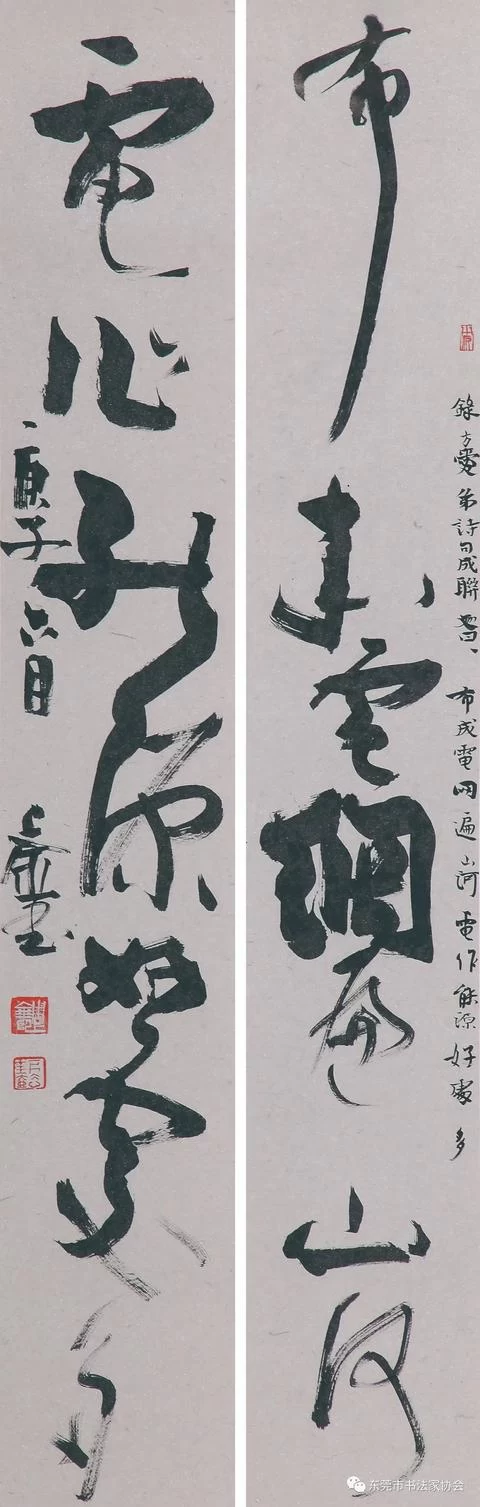 布成電網遍山河
錄方愛弟詩句成聯 曾、布成電網遍山河 電作能源好處多
電作能源好處多
庚子六月
东莞市书法家协会